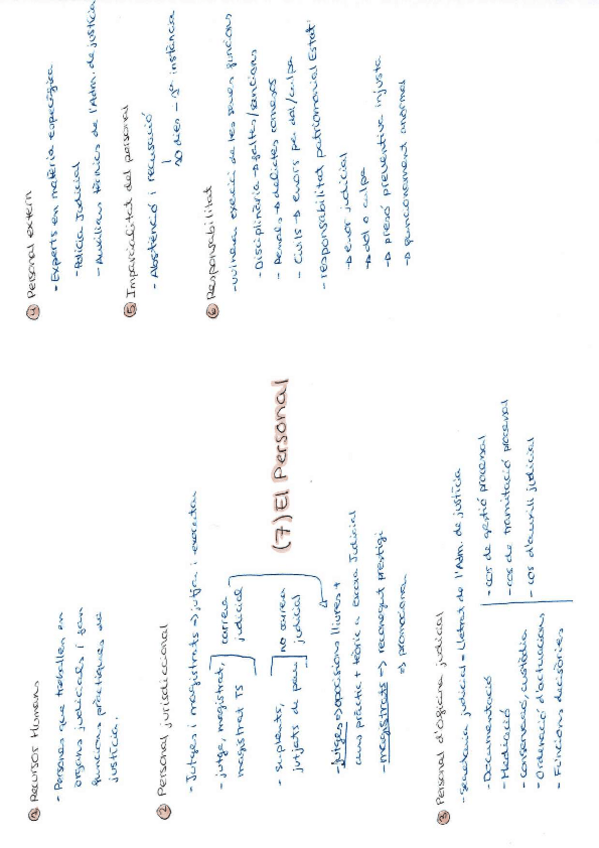 (7) El Personal
① Recursos Humans
- Persones que treballen en
òrgans judicials i fan
funcions pràctiques de
justícia.
② Personal jurisdiccional
- Jutges i magistrats → jutja i executa
- jutge, magistrat,
magistrat TS
carrera
judicial
- suplents,
jutjats de pau
no carrera
judicial
- jutges → oposicions lliures +
curs pràctic + teòric a Escola Judicial
- magistrats → reconegut prestigi
→ promocionen
③ Personal d'oficina judicial
- Secretaria judicial = Lletrat de l'Adm. de justícia
- Documentació
- Mediació
- Conservació, custòdia
- Ordenació d'actuacions
- Funcions decisòries
- cos de gestió processal
- cos de tramitació processal
- cos d'auxili judicial
④ Personal extern
- Experts en matèria específica
- Policia Judicial
- Auxiliars tècnics de l'Adm. de justícia
⑤ Imparcialitat del personal
- Abstenció i recusació
10 dies - 1ª instància
⑥ Responsabilitat
- vulneren exercici de les seves funcions
- Disciplinària → faltes/sancions
- Penals → delictes comesos
- Civils → errors per dol/culpa
- responsabilitat patrimonial Estat:
→ error judicial
→ dol o culpa
→ presó preventiva injusta
→ funcionament anormal